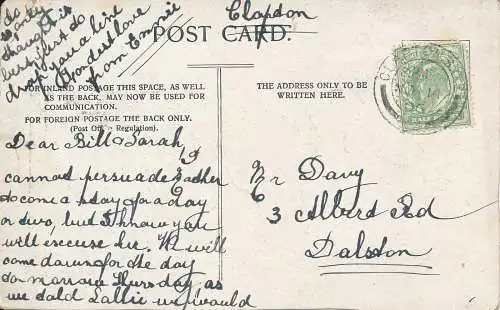 Clapton
POST CARD.
FOR INLAND POSTAGE THIS SPACE, AS WELL
AS THE BACK, MAY NOW BE USED FOR
COMMUNICATION.
FOR FOREIGN POSTAGE THE BACK ONLY.
(Post Office Regulation).
THE ADDRESS ONLY TO BE
WRITTEN HERE.
HALF
Dear Bill & Sarah
I
cannot persuade Father
to come a day for a day
or two, but I know you
will excuse her. We will
come down for the day
to-morrow Thursday as
we told Lallie we would
do
only
thought
best just to
drop you a line
Fondest love
from Emmie
Mr Davy
3 Albert Rd
Dalston